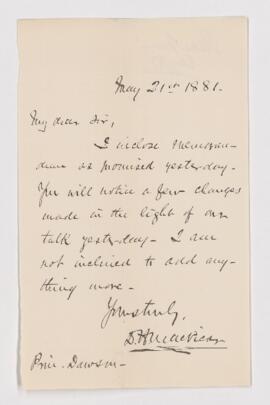 May 21st 1881.
My dear Sir,
I inclose Memoran-
dum as promised yesterday.
You will notice a few changes
made in the light of our
talk yesterday. I am
not inclined to add any-
thing more.
Yours truly,
D.H. MacVicar
Prin. Dawson